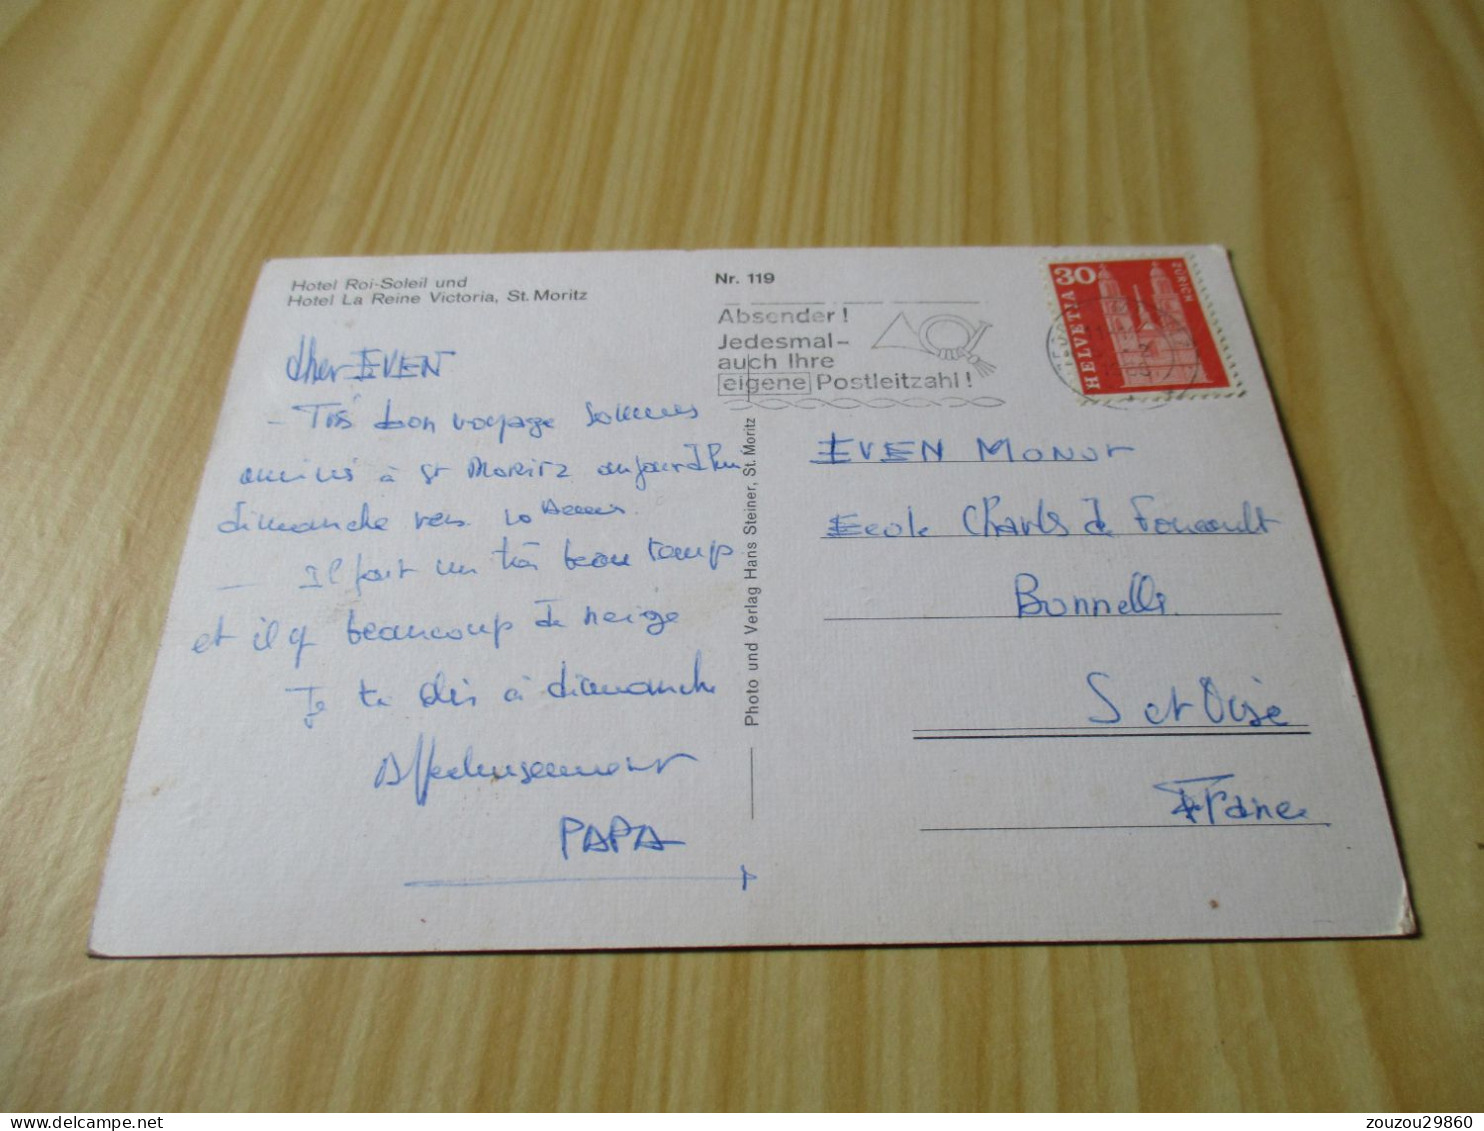 Hotel Roi-Soleil und
Hotel La Reine Victoria, St. Moritz
Cher EVEN
- Très bon voyage sommes
arrivés à St MORITZ aujourd'hui
dimanche vers 10 heures.
- Il fait un très beau temps
et il y beaucoup de neige
Je te dis à dimanche
Affectueusement
PAPA
Photo und Verlag Hans Steiner, St. Moritz
Nr. 119
Absender!
Jedesmal-
auch Ihre
eigene Postleitzahl!
30
HELVETIA
ZÜRICH
EVEN
Ecole Charles de Foucault
Bonnelles
S et Oise
France
zouzou29860